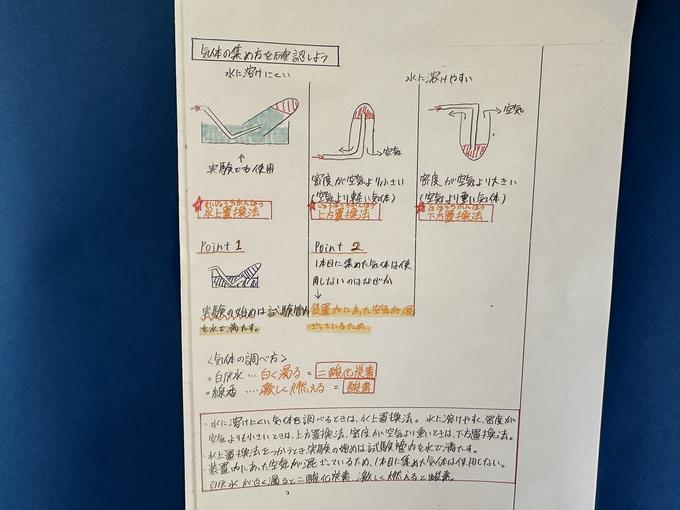 気体の集め方を確認しよう
水に溶けにくい
水に溶けやすい
空気
空気
実験でも使用
密度が空気より小さい
(空気より軽い気体)
密度が空気より大きい
(空気より重い気体)
すいじょうちかんほう
水上置換法
じょうほうちかんほう
上方置換法
かほうちかんほう
下方置換法
Point 1
Point 2
1本目に集めた気体は使
用しないのはなぜか
↓
実験の始めは試験管内
を水で満たす。
装置内にあった空気が混
ざっているため。
〈気体の調べ方〉
。石灰水…白く濁る=二酸化炭素
。線香….激しく燃える=酸素
・水に溶けにくい気体を調べるときは、水上置換法。水に溶けやすく、密度が
空気よりも小さいときは、上方置換法、密度が空気より重いときは、下方置換法。
水上置換法をつかうとき、実験の始めは試験管内を水で満たす。
装置内にあった空気が混ざっているため、1本目に集めた気体は使用しない。
石灰水が白く濁ると二酸化炭素、激しく燃えると酸素。